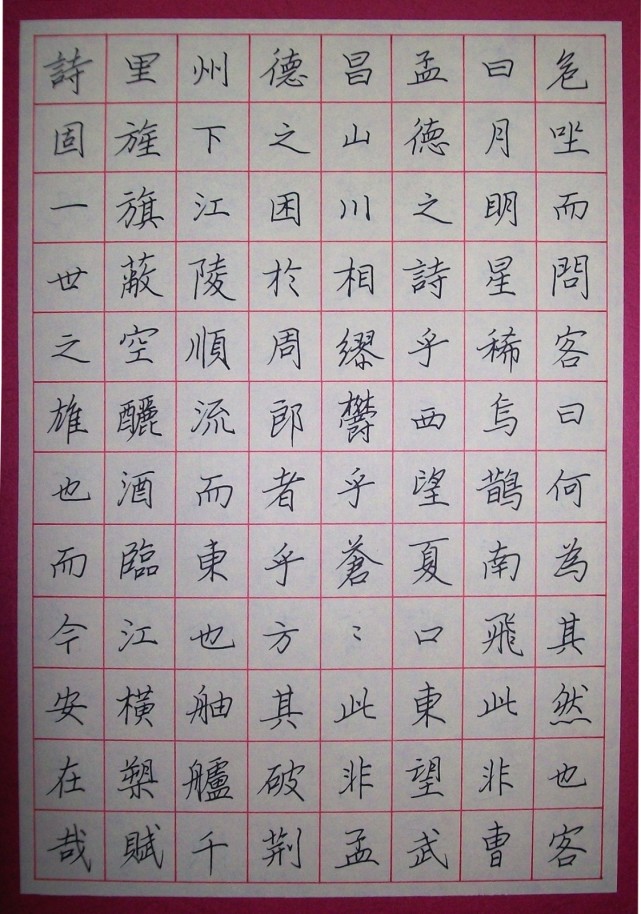 危坐而問客曰何為其然也客
曰月明星稀烏鵲南飛此非曹
孟德之詩乎西望夏口東望武
昌山川相繆鬱乎蒼〻此非孟
德之困於周郎者乎方其破荆
州下江陵順流而東也舳艫千
里旌旗蔽空釃酒而臨江橫槊賦
詩固一世之雄也而今安在哉